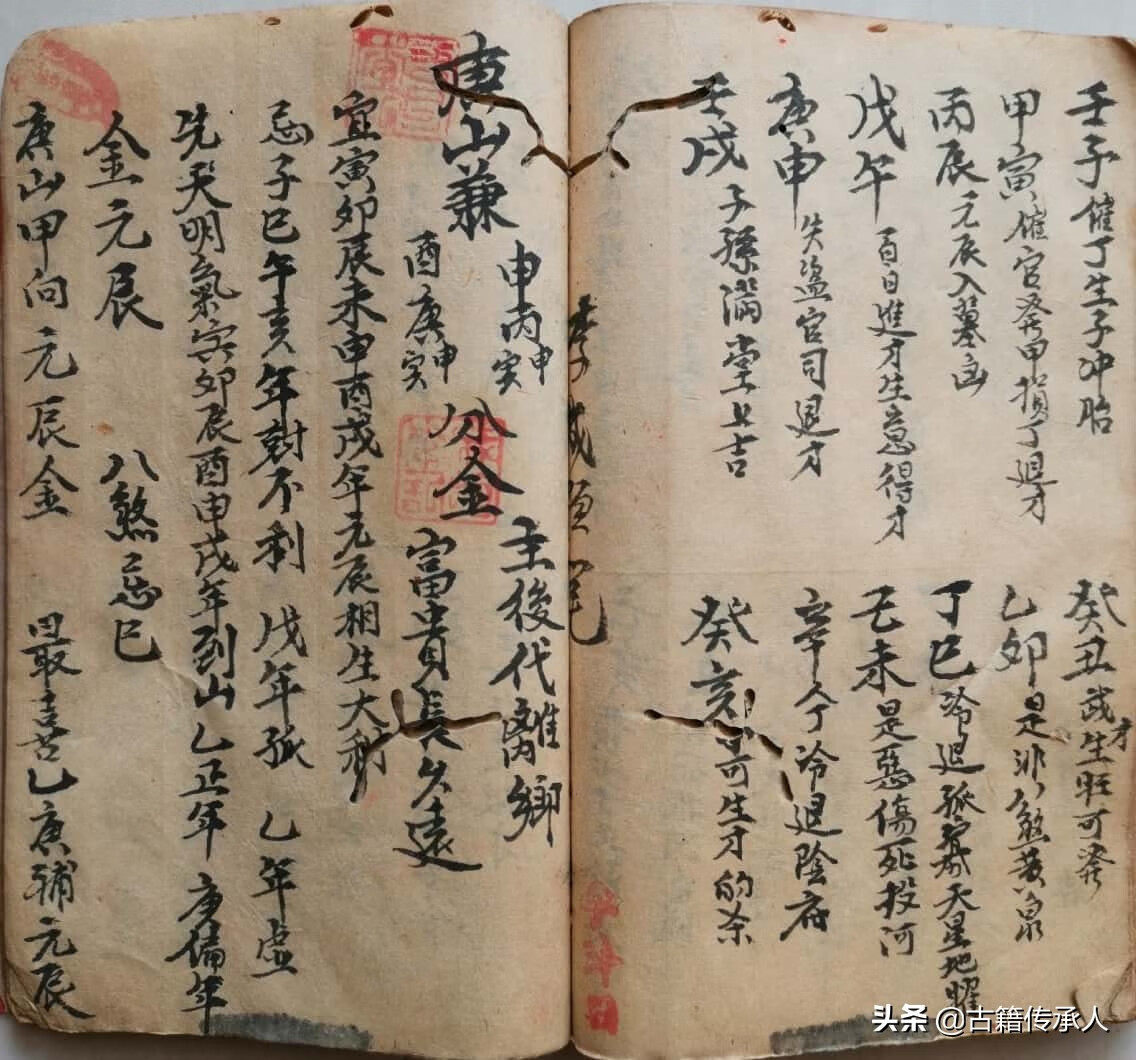 壬子催丁生子冲胎
癸丑武才生旺可發
甲寅催官發甲損丁退才
乙卯是非煞黄泉
丙辰元辰入墓凶
丁巳冷退孤寡天星地曜
戊午百日進才生意得才
己未是惡傷死投河
庚申失盗官司退才
辛人丁冷退陰府
壬戌子孫滿堂上吉
癸亥可生才的杀
庚山兼
申丙申寅
酉庚申寅
分金
主後代離鄉
富貴長久遠
宜寅卯辰未申酉戌年元辰相生大利
忌子巳午亥年尅不利 戊年孤 乙年虚
先天明氣寅卯辰酉申戌年到山乙正年 庚偏年
金元辰 八煞忌巳
庚山甲向元辰金 最喜乙庚輔元辰
头条 @古籍传承人